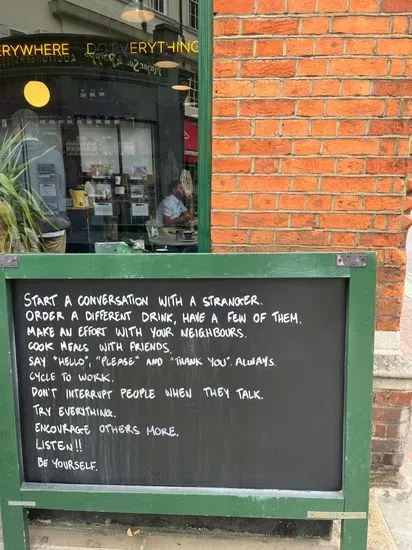 ERYWHERE DO EVERYTHING
START A CONVERSATION WITH A STRANGER.
ORDER A DIFFERENT DRINK, HAVE A FEW OF THEM.
MAKE AN EFFORT WITH YOUR NEIGHBOURS.
COOK MEALS WITH FRIENDS.
SAY "HELLO", "PLEASE" AND "THANK YOU". ALWAYS.
CYCLE TO WORK.
DON'T INTERRUPT PEOPLE WHEN THEY TALK.
TRY EVERYTHING.
ENCOURAGE OTHERS MORE.
LISTEN!!
BE YOURSELF.